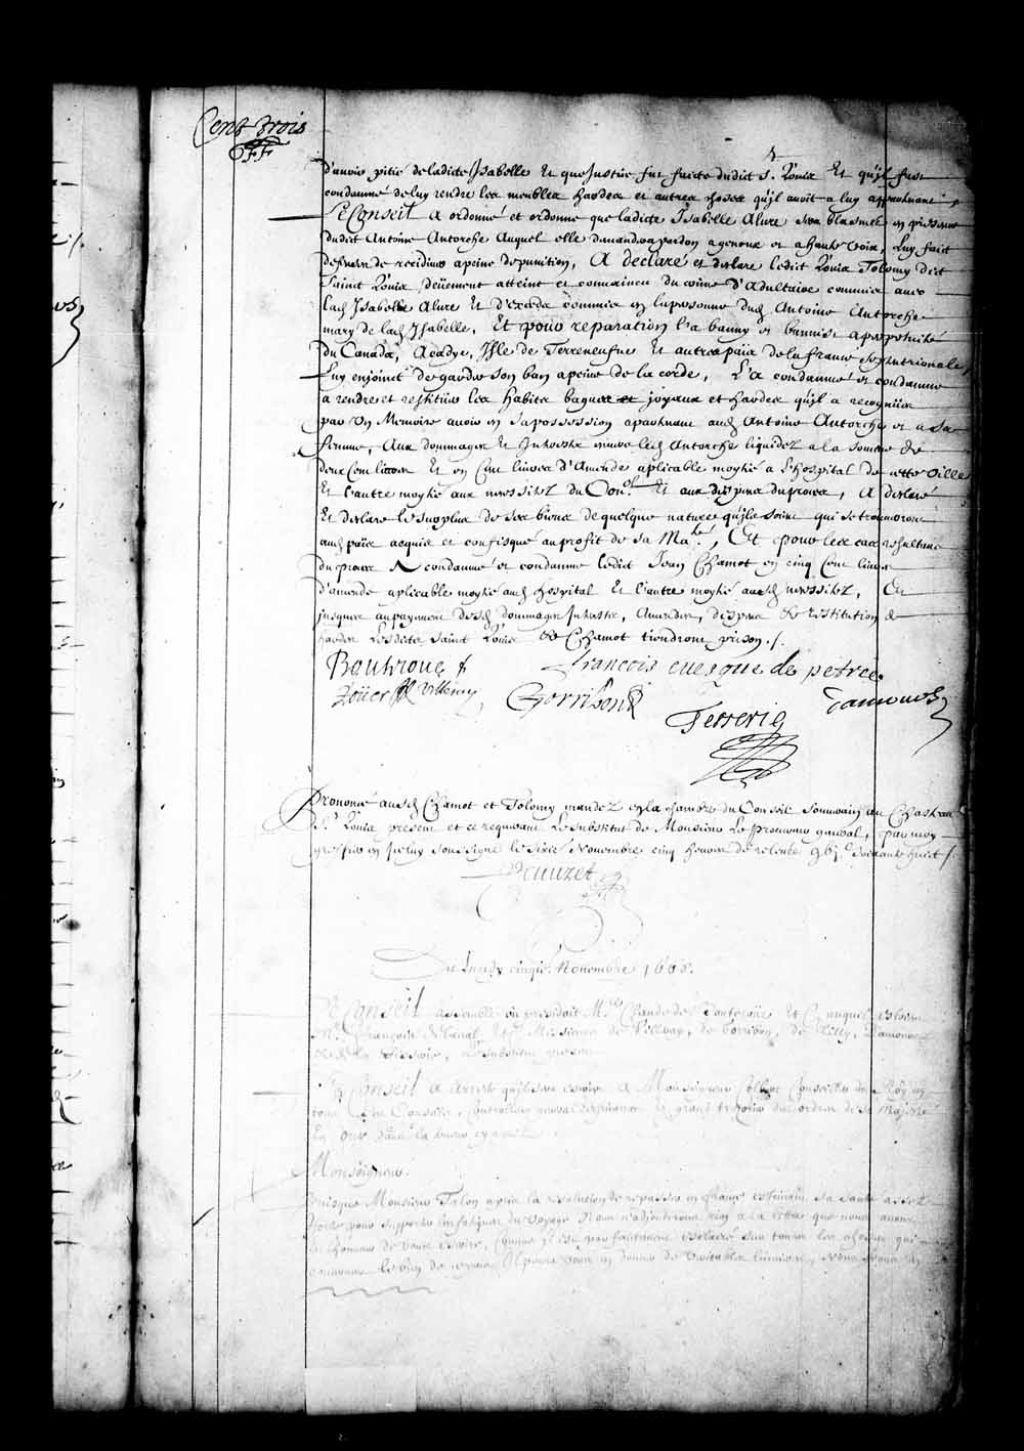 Cent trois
d'avoir pitié de ladicte Isabelle Et que Justice fut faicte dudict S.t Louis Et qu'il fust
condamné de luy rendre les meubles hardes et autres choses qu'il avoit a luy apartenant
Le Conseil A ordonné et ordonne que ladicte Isabelle Alure sera blasmée en presence
dudict Antoine Antorche Auquel elle demandera pardon a genoux et a haute voix, Luy faict
deffence de recidiver a peine de punition, A declaré et declare ledict Louis Tolomy dict
Saint Louis deüement atteint et convaincu du crime d'Adultaire commis avec
lad. Isabelle Alure Et d'excedz commis en la personne dud. Antoine Antorche
mary de lad. Isabelle, Et pour reparation l'a banny et bannist a perpetuité
du Canada, Acadye, Isle de Terreneufve Et autres païs de la france Septentrionale,
Luy enjoinct de garder son ban a peine de la corde, L'a condamné et condamne
a rendre et restituer les habits bagues et joyaux et hardes qu'il a recognües
par Un Memoire avoir en sa possession apartenant aud. Antoine Antorche et a sa
femme, Aux dommages Et Interestz envers led. Antorche liquidez a la somme de
deux Cent livres Et en Cent livres d'Amende aplicable moytié a l'hospital de cette Ville
Et l'autre moytié aux necessitez du Con.el Et aux despens du procez, A declaré
Et declare le surplus de ses biens de quelque nature qu'ils soient qui se trouveront
aud. païs acquis et confisqué au profit de sa Ma.té, Et pour les cas resultans
du procez A condamné et condamne ledict Jean Chamot en cinq Cent livres
d'amende aplicable moytié aud. hospital Et l'autre moytié ausd. necessitez, Et
jusques au payement desd. dommages Interestz, Amendes, despens & restitution de
hardes Lesdits Saint Louis & Chamot tiendront prison ./.
Boutroue
francois euesque de petree
Roüer Villeray
Gorribon
Damours
Tesserie
Prononcé ausd. Chamot et Tolomy mandez en la chambre du Conseil Souverain au Chasteau
S.t Louis present et ce requerant Le substitut de Monsieur Le Procureur general, par moy
greffier en iceluy soussigné le sixie Novembre cinq heures de relevée soixante huict ./.
Du Lundy cinqie. Novembre 1668.
Le Conseil assemblé où presidoit M.re Claude de Boutroüe Et auquel estoient
M.re François de Laval Messieurs de Villeray, de Gorribon, de Tilly, Damours
et de la Tesserie, Le substitut present
Le Conseil a arresté qu'il sera escrit A Monseigneur Colbert Conseiller du Roy en
tous Ses Conseils, Controlleur general des finances Et grand tresorier des ordres de sa Majesté
Monseigneur
Puisque Monsieur Talon a pris la resolution de repasser en france estimant sa santé assez
forte pour supporter les fatigues du voyage Nous n'adjouterons rien a la lettre que nous avons